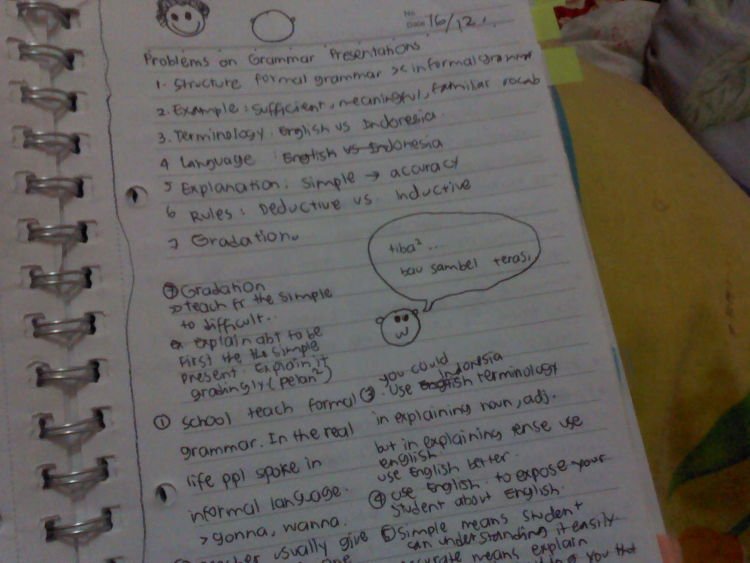 No
Date 16/12.
Problems on Grammar Presentations
1. Structure formal grammar >< informal grammar
2. Example: sufficient, meaningful, familiar vocab
3. Terminology: English vs Indonesia.
4 Language: English vs Indonesia
5 Explanation: simple → accuracy
6 Rules: Deductive vs. Inductive
7 Gradation.
tiba² ..
bau sambel terasi.
⑦ Gradation
> teach fr the simple
to difficult..
ex explain abt to be
First the the simple
present. Explain it
gradingly (pelan²)
① School teach formal
grammar. In the real
life ppl spoke in
informal language.
> gonna, wanna.
usually give
③ you could
Indonesia
use English terminology
in explaining noun, adj.
but in explaining tense use
english
use English better.
④ use English. to expose your
student about English.
⑤ Simple means student
can understanding it easily
accurate means explain
you that